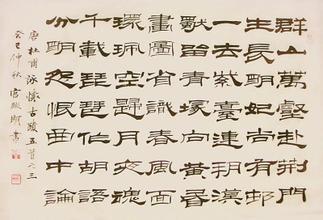 群山萬壑赴荊門
生長明妃尚有邨
一去紫臺連朔漠
獨留青塚向黃昏
畫圖省識春風面
環珮空歸月夜魂
千載琵琶作胡語
分明怨恨曲中論
唐杜甫詠懷古跡五首之三
癸巳仲秋宮書